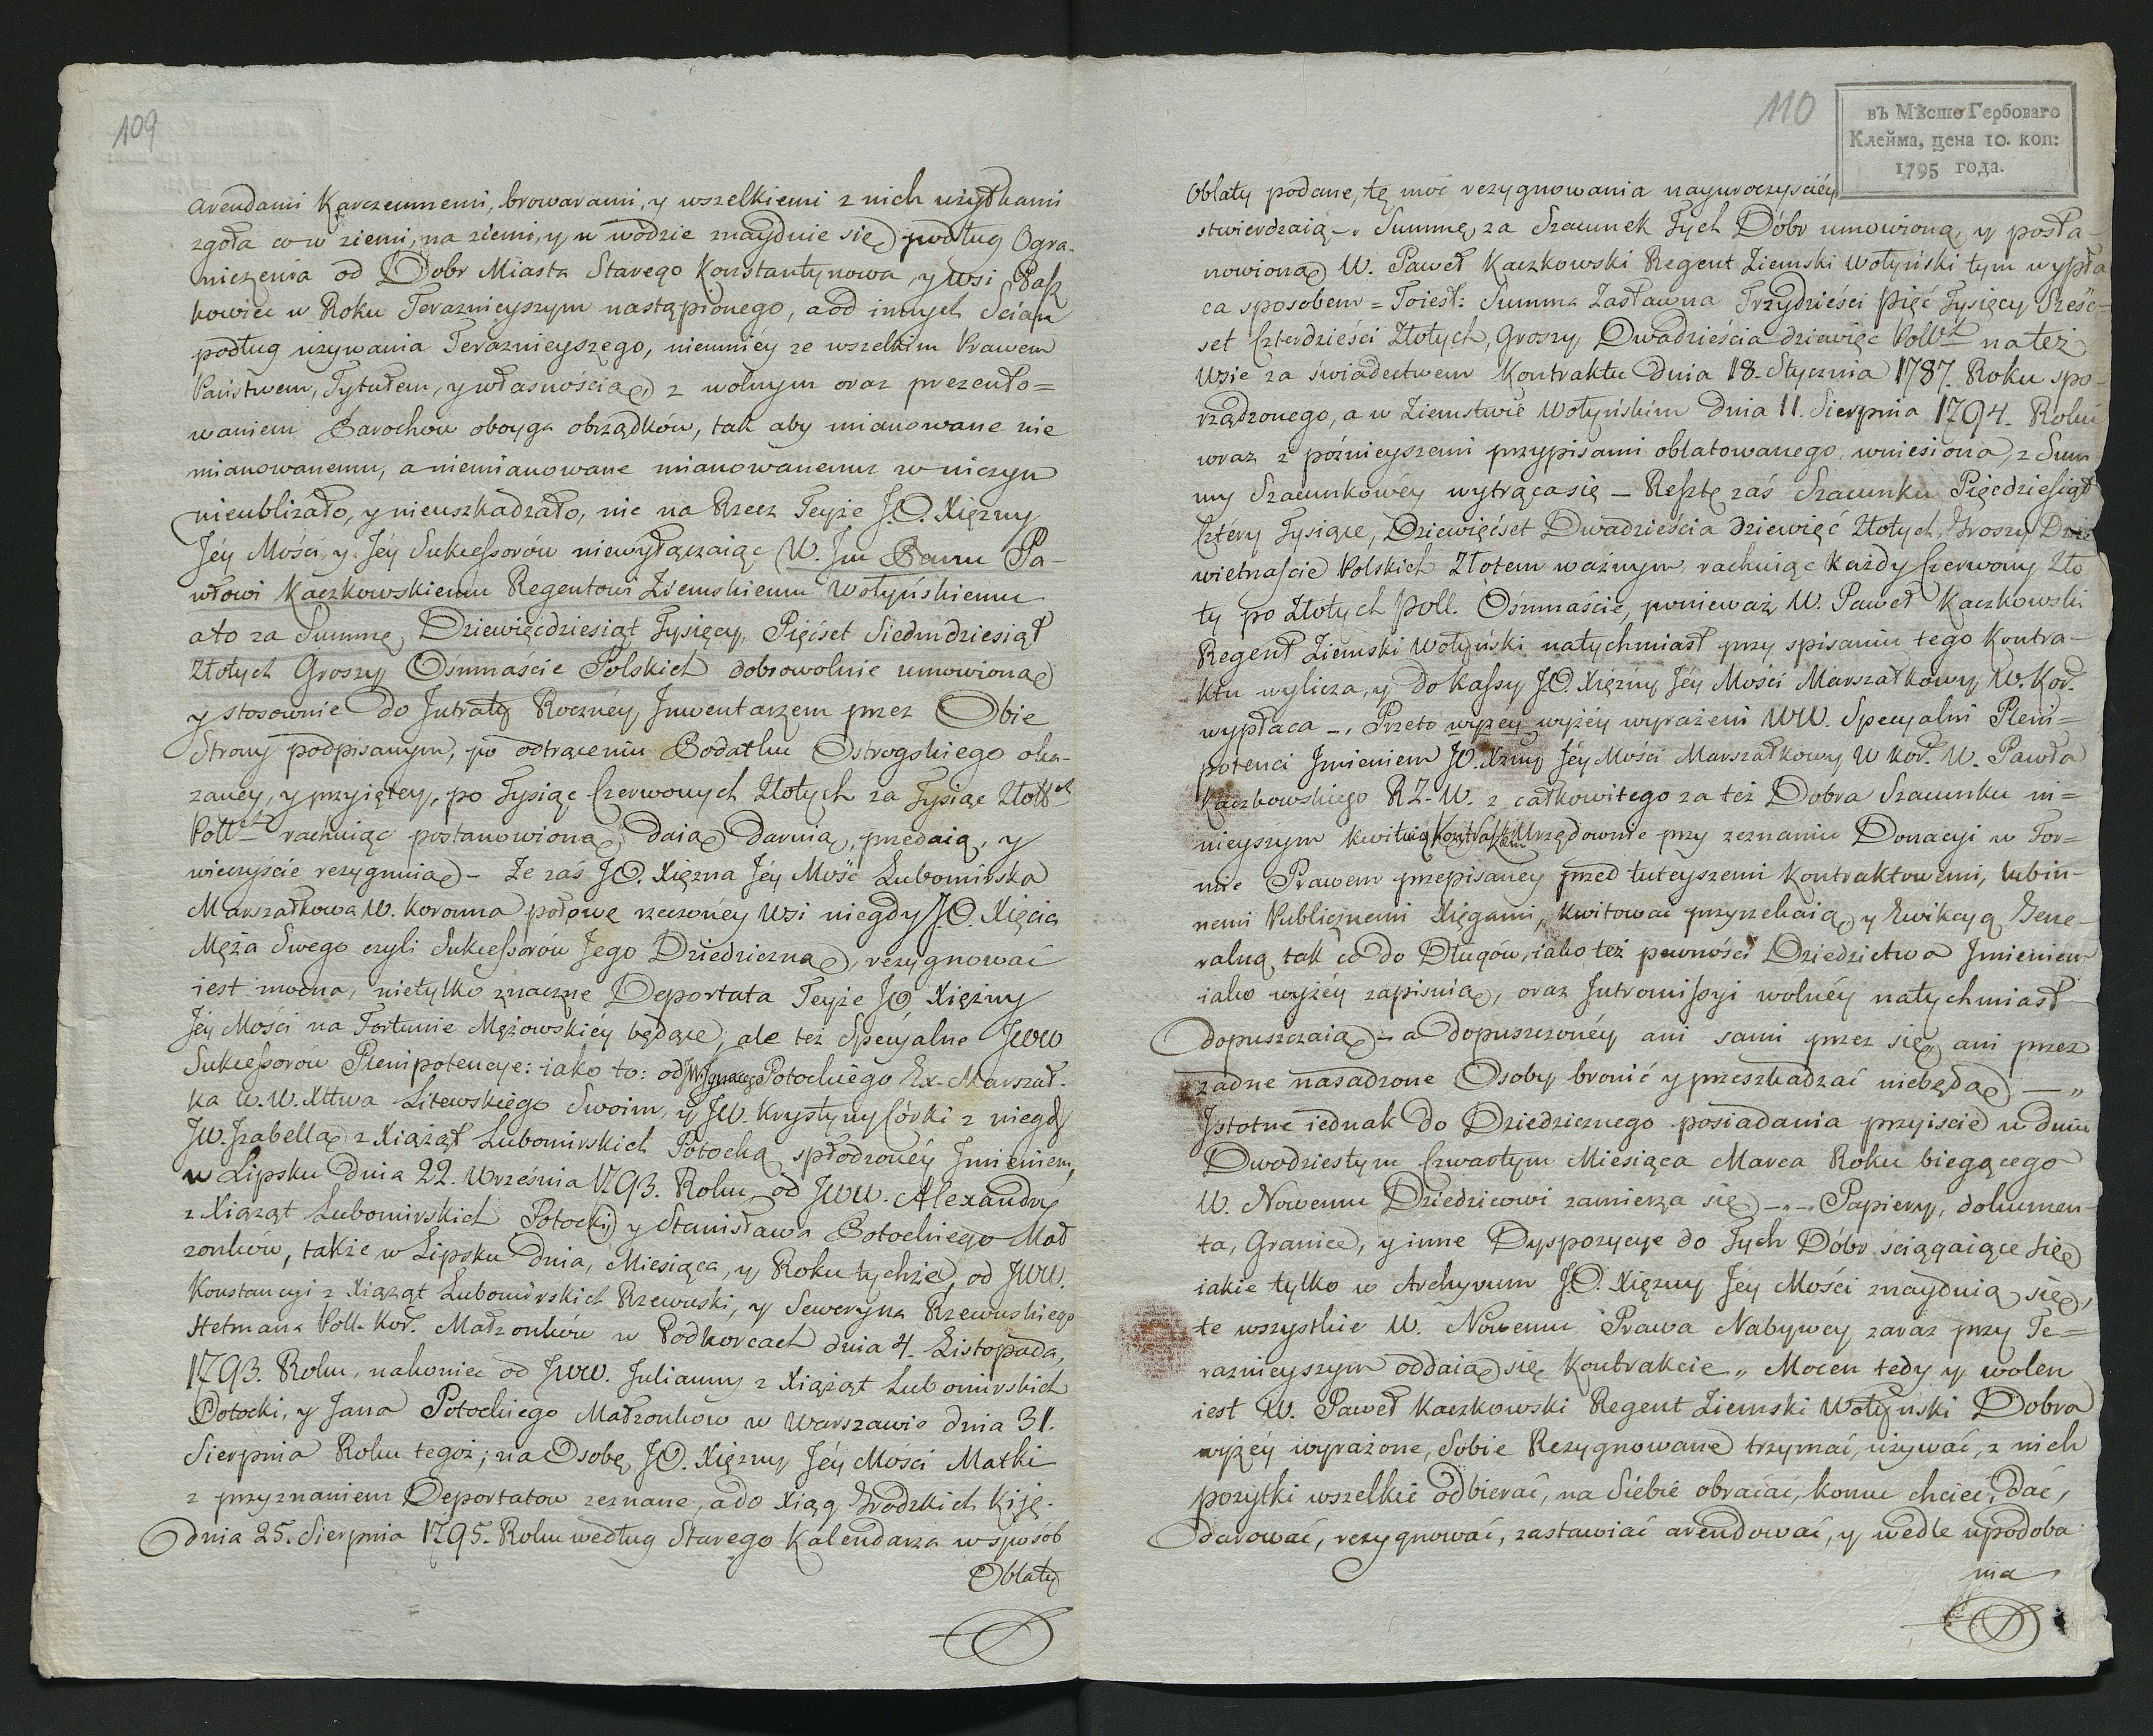 109
arendami Karczemnemi, browarami, y wszelkiemi z nich użytkami
zgoła co w ziemi, na ziemi, y w wodzie znayduie się podług Ogra-
niczenia od Dobr Miasta Starego Konstantynowa, y wsi Pasz
kowiec w Roku Teraznieyszym nastąpionego, a od innych Scian
podług używania Teraznieyszego, niemniéy ze wszelkim Prawem
Państwem, Tytułem, y własnością, z wolnym oraz prezento=
waniem Parochow oboyga obrządków, tak aby mianowane nie
mianowanemu, a niemianowane mianowanemu w niczym
nieubliżało, y nieuszkadzało, nic na Rzecz Teyże J.O. Xiężny
Jéy Mości, y Jéy Sukcessorów niewyłączaiąc W. Jm Panu Pa-
włowi Kaczkowskiemu Regentowi Ziemskiemu Wołyńskiemu
a to za Summę Dziewięćdziesiąt Tysięcy, Pięćset Siedmdziesiąt
Złotych Groszy Ośmnaście Polskich dobrowolnie umowioną
y stosownie do Intraty Roczney, Inwentarzem przez Obie
Strony podpisanym, po odtrąceniu Podatku Ostrogskiego oka-
zaney, y przyiętey, po Tysiąc Czerwonych Złotych za Tysiąc Złottch
Pollch rachuiąc postanowioną daią daruią, przedaią, y
wieczyście rezygnuią - Ze zaś JO. Xiężna Jéy Mość Lubomirska
Marszałkowa W. Koronna połowę rzeczoney Wsi niegdy J.O. Xięcia
Męża Swego czyli Sukcessorów Jego Dziedziczną, rezygnować
iest mocna, nietylko znaczne Deportata Teyże JO Xiężny
Jéy Mości na Fortunie Mężowskiéy będące; ale też Specyalne JWW
Sukcessorów Plenipotencye: iako to: od JW. Ignacego Potockiego Ex-Marszał-
ka W. W. XLtwa Litewskiego Swoim, y JW. Krystyny Córki z niegdy
JW. Izabellą z Xiążąt Lubomirskich Potocką spłodzonéy Imieniem,
w Lipsku Dnia 22. Września 1793. Roku, od JWW. Alexandry
z Xiążąt Lubomirskich Potockiy y Stanisława Potockiego Mał
żonków, także w Lipsku Dnia, Miesiąca, y Roku tychże, od JWW.
Konstancyi z Xiążąt Lubomirskich Rzewuski, y Seweryna Rzewuskiego
Hetmana Poll. Kor. Małżonków w Podhorcach dnia 4. Listopada,
1793. Roku, nakoniec od JWW. Julianny z Xiążąt Lubomirskich
Potocki, y Jana Potockiego Małżonków w Warszawie dnia 31.
Sierpnia Roku tegoż; na Osobę JO. Xiężny Jéy Mości Matki
z przyznaniem Deportatow zeznane, a do Xiąg Grodzkich Kije.
dnia 25. Sierpnia 1795. Roku według Starego Kalendarza w sposób
Oblaty
110
въ Мѣсто Гербоваго
Клейма, цена 10. коп:
1795 года.
Oblaty podane, tę moc rezygnowania nayuroczyściéy
stwierdzaią -. Summę za Szacunek Tych Dóbr umowioną y posta-
nowioną W. Paweł Kaczkowski Regent Ziemski Wołyński tym wypła
ca sposobem = Toiest: Summa Zastawna Trzydzieści Pięć Tysięcy Sześć-
set Czterdzieści Złotych, Groszy Dwadzieścia dziewięć Pollch na też
Wsie za świadectwem Kontraktu Dnia 18. Stycznia 1787. Roku spo-
rządzonego, a w Ziemstwie Wołyńskim Dnia 11. Sierpnia 1794. Roku
wraz z póznieyszemi przypisami oblatowanego wniesiona, z Sum-
my Szacunkowéy wytrąca się - Resztę zaś Szacunku Pięcdziesiąt
Cztery Tysiące, Dziewięćset Dwadzieścia dziewięć Złotych, Groszy Dzie
wietnaście Polskich Złotem ważnym, rachuiąc Każdy Czerwony Zło
ty po Złotych Poll. Ośmnaście, ponieważ W. Paweł Kaczkowski
Regent Ziemski Wołyński natychmiast przy spisaniu tego Kontra-
ktu wylicza, y do Kassy JO. Xiężny Jéy Mości Marszałkowy W. Kor.
wypłaca -. Przeto wyzey wyżéy wyrażeni WW. Specyalni Pleni=
potenci Imieniem JO. Xżny Jéy Mości Marszałkowy W Kor. W. Pawła
Kaczkowskiego RZ. W. z całkowitego za też Dobra Szacunku ni=
nieyszym kwituią Kontraktem Urzędownie przy zeznaniu Donacyi w For=
mie Prawem przepisaney przed tuteyszemi Kontraktowemi, lub in-
nemi Publicznemi Xięgami, Kwitować przyrzekaią y Ewikcyą Gene-
ralną, tak co do Długów, iako też pewności Dziedzictwa Imieniem
iako wyżéy zapisuią, oraz Intromissyi wolnéy natychmiast
Dopuszczaią - a dopuszczonéy ani sami przez się, ani przez
żadne nasadzone Osoby bronić y przeszkadzać niebędą - „
Istotne iednak do Dziedzicznego posiadania przyiscie w dniu
Dwodziestym Czwartym Miesiąca Marca Roku biegącego
W. Nowemu Dziedzicowi zamierza się -.-. Papiery, dokumen-
ta, Granice, y inne Dyspozycye do Tych Dóbr ściągaiące się
iakie tylko w Archyvum JO. Xiężny Jéy Mości znayduią się,
te wszystkie W. Nowemu Prawa Nabywcy zaraz przy Te=
raznieyszym oddaią się Kontrakcie „ Mocen tedy y wolen
iest W. Paweł Kaczkowski Regent Ziemski Wołyński Dobra
wyżéy wyrażone, Sobie Rezygnowane trzymać, używać, z nich
pożytki wszelkie odbierać, na Siebie obracać, komu chcieć, Dać,
Darować, rezygnować, zastawiać arendować, y wedle upodoba
nia